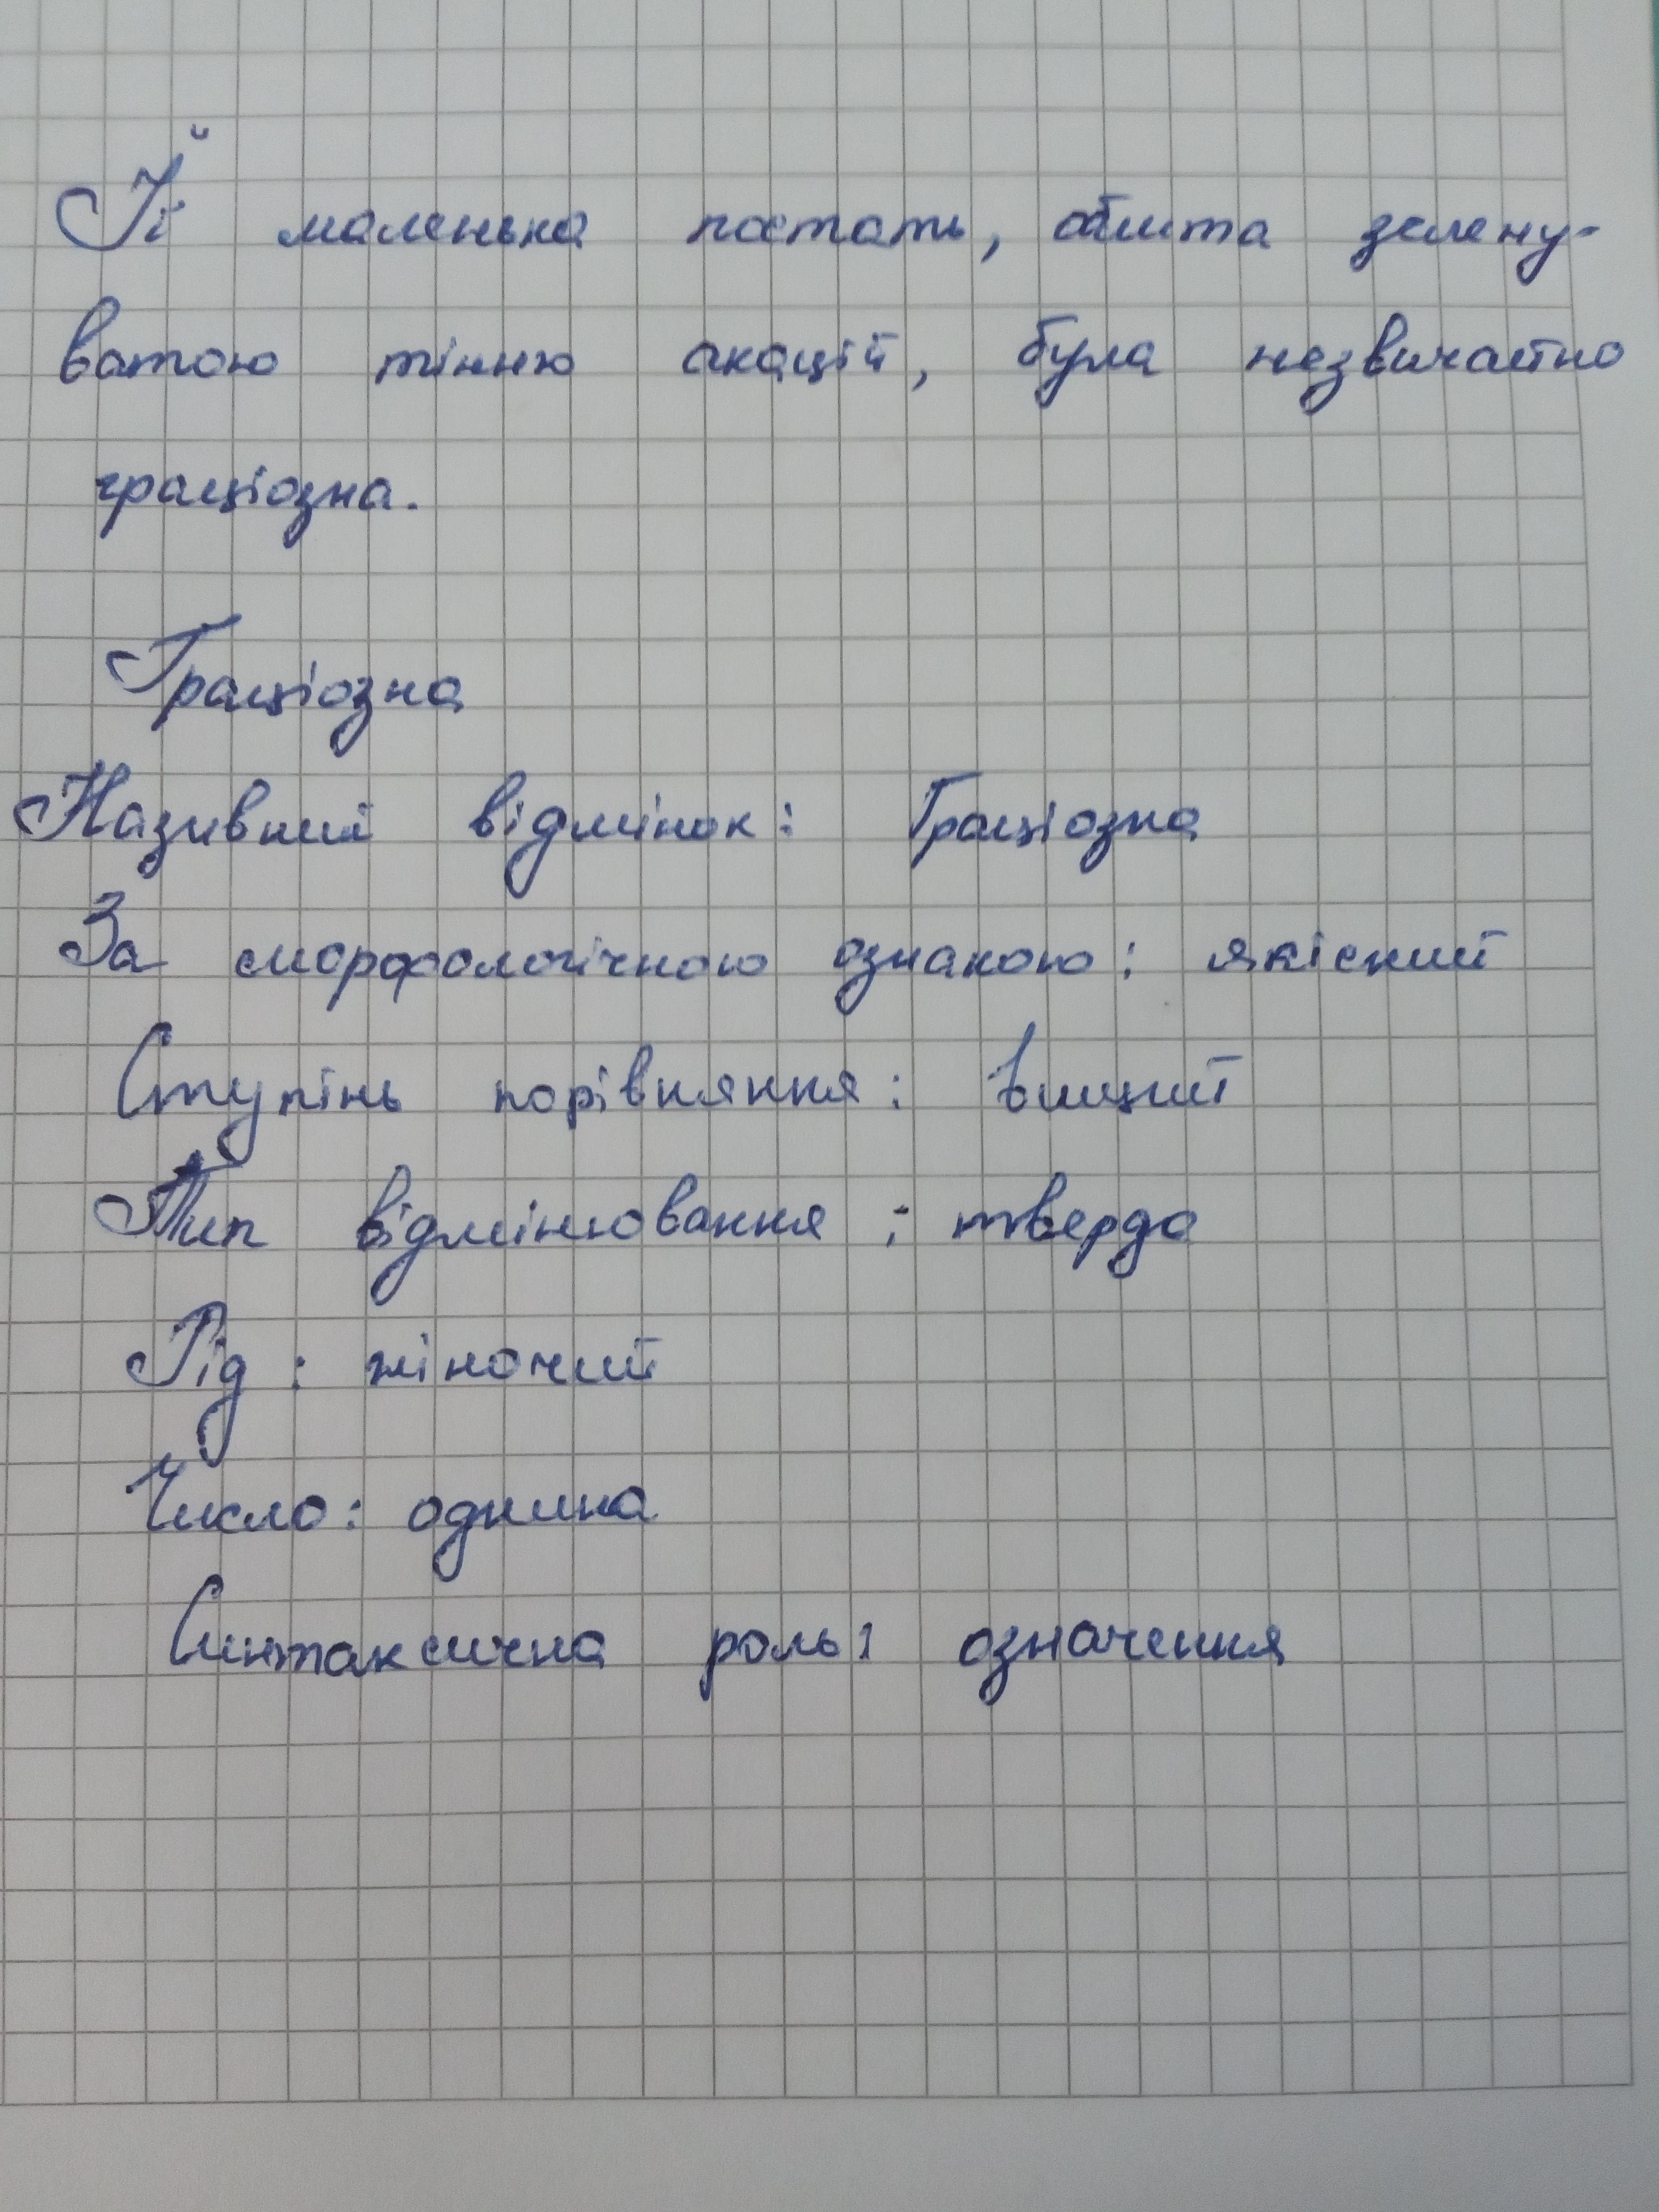 Її маленька постать, облита зелену-
ватою тінню акацій, була незвичайно
граціозна.
Граціозна
Називний відмінок: Граціозна
За морфологічною ознакою: якісний
Ступінь порівняння: вищий
Тип відмінювання: тверда
Рід: жіночий
Число: однина
Синтаксична роль: означення